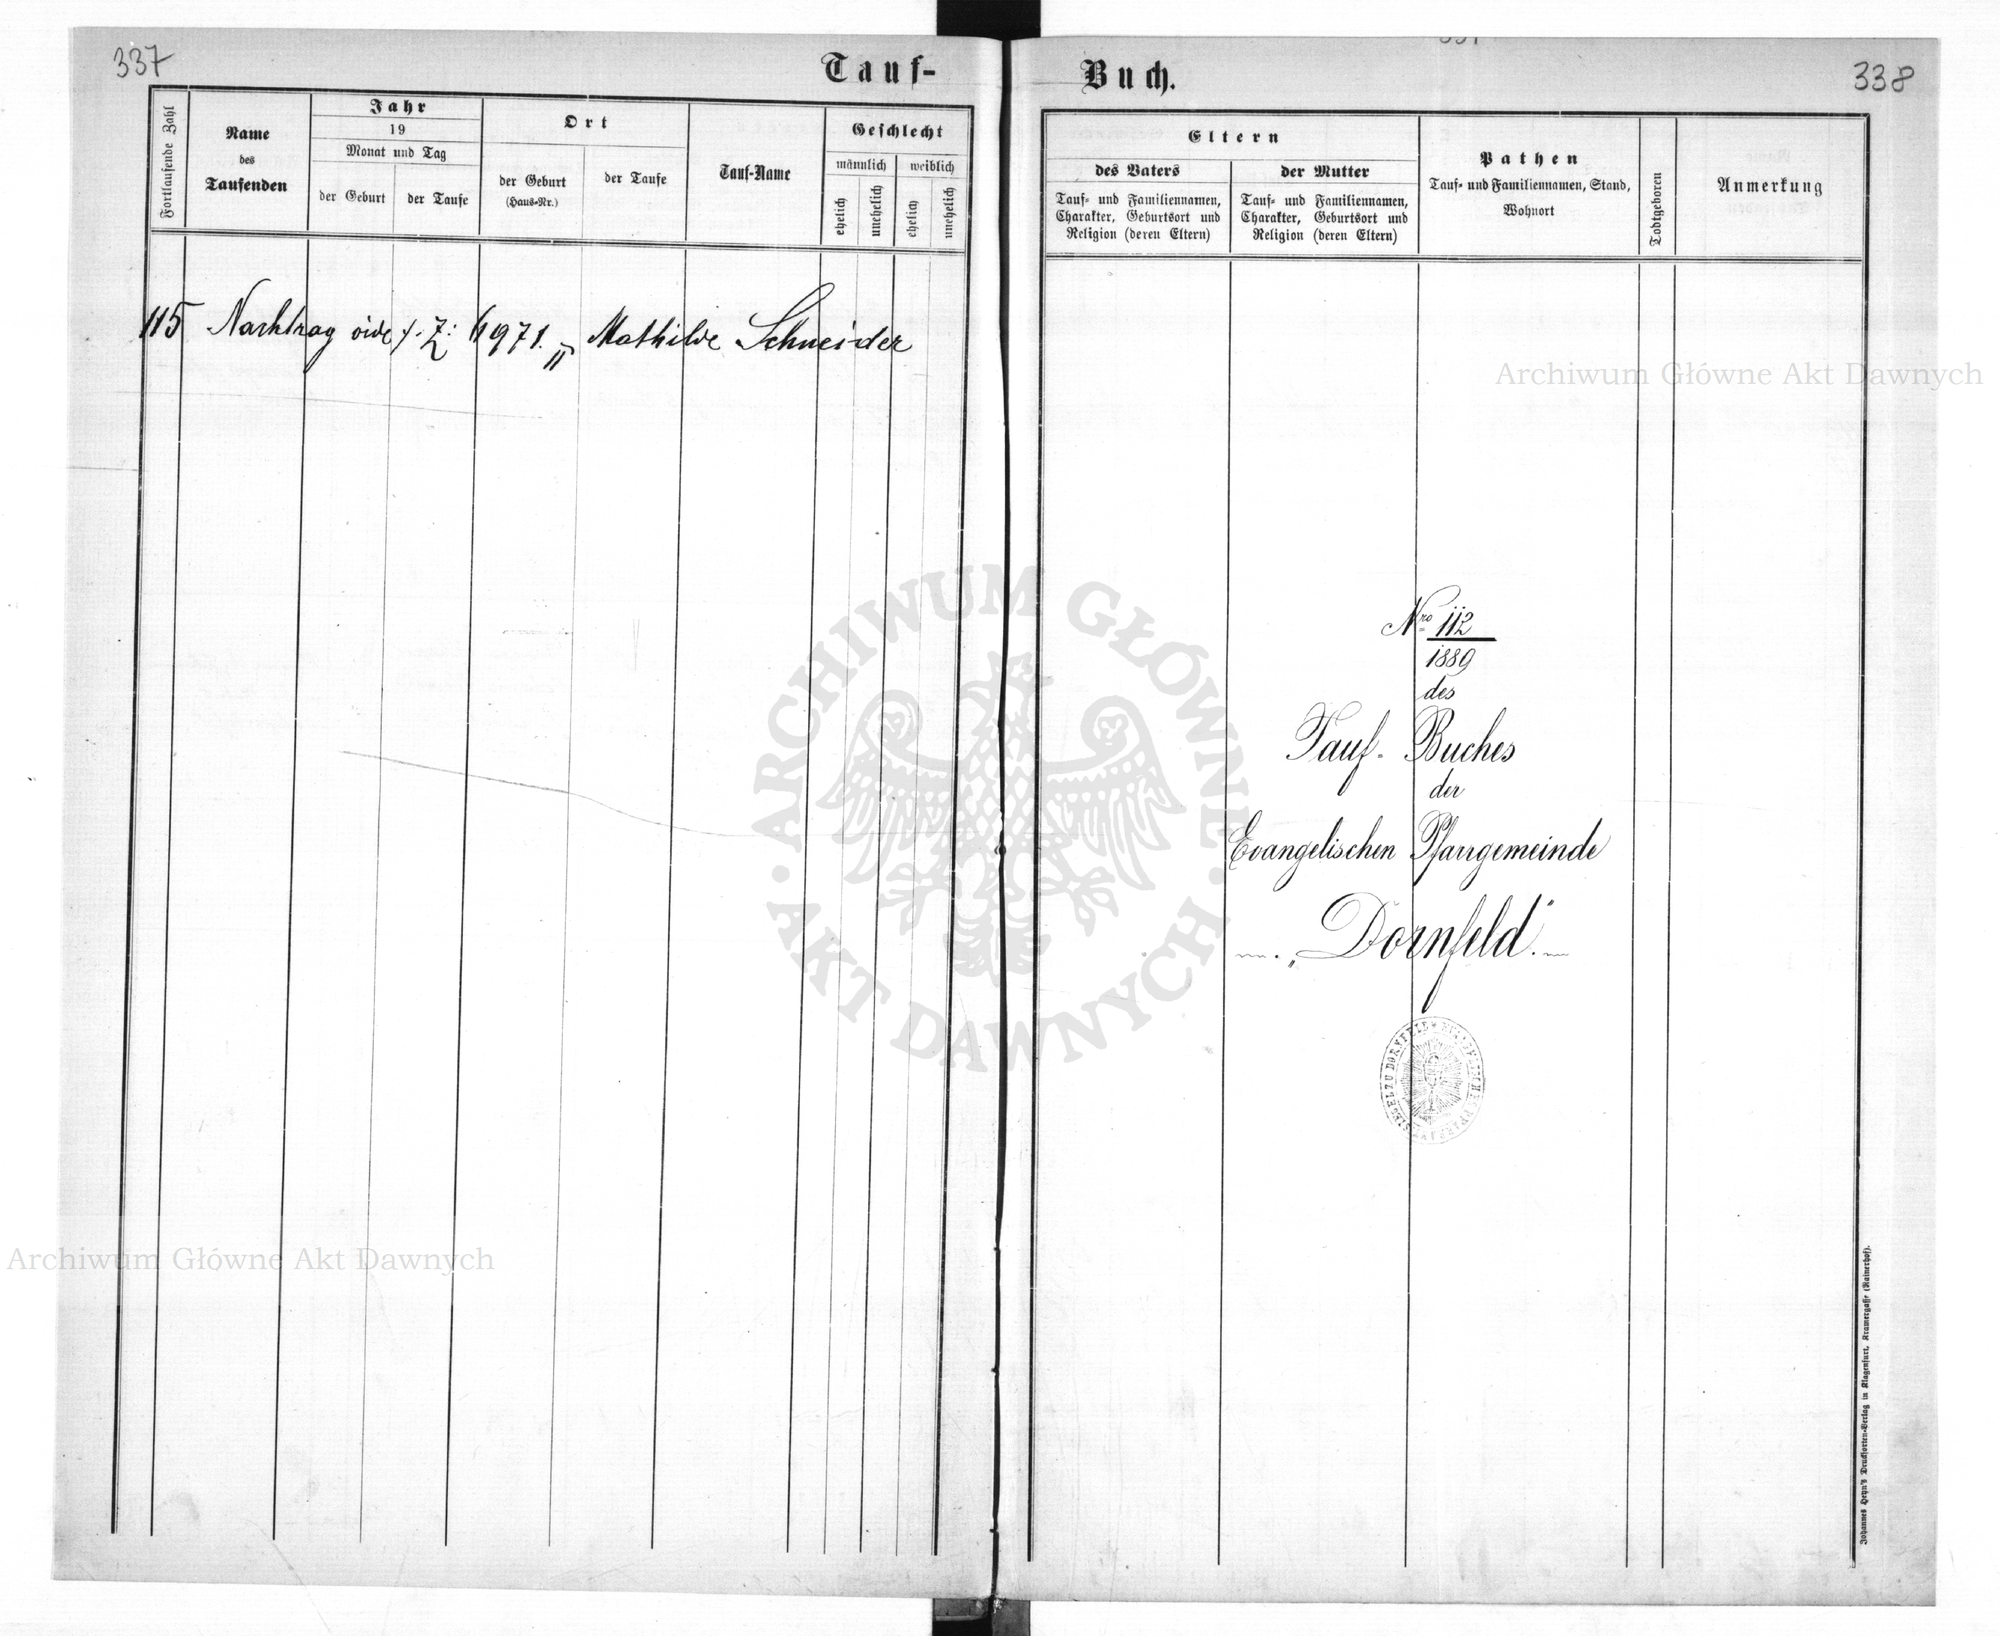 337
Tauf-
Fortlaufende Zahl
Name
des
Taufenden
Jahr
19
Monat und Tag
der Geburt
der Taufe
Ort
der Geburt
(Haus-Nr.)
der Taufe
Tauf-Name
Geschlecht
männlich
weiblich
ehelich
unehelich
ehelich
unehelich
115 Nachtrag Mathilde Schneider
Buch.
338
Eltern
des Vaters
Tauf- und Familiennamen,
Charakter, Geburtsort und
Religion (deren Eltern)
der Mutter
Tauf- und Familiennamen,
Charakter, Geburtsort und
Religion (deren Eltern)
Pathen
Tauf- und Familiennamen, Stand,
Wohnort
Todtgeboren
Anmerkung
Nro 112
1889
des
Tauf- Buches
der
Evangelischen Pfarrgemeinde
„Dornfeld“
SIEGEL ZU DORNFELD
Johannes Heyn's Drucksorten-Verlag in Klagenfurt, Kramergasse (Rainerhof).
Archiwum Główne Akt Dawnych
ARCHIWUM GŁÓWNE
AKT DAWNYCH
Archiwum Główne Akt Dawnych